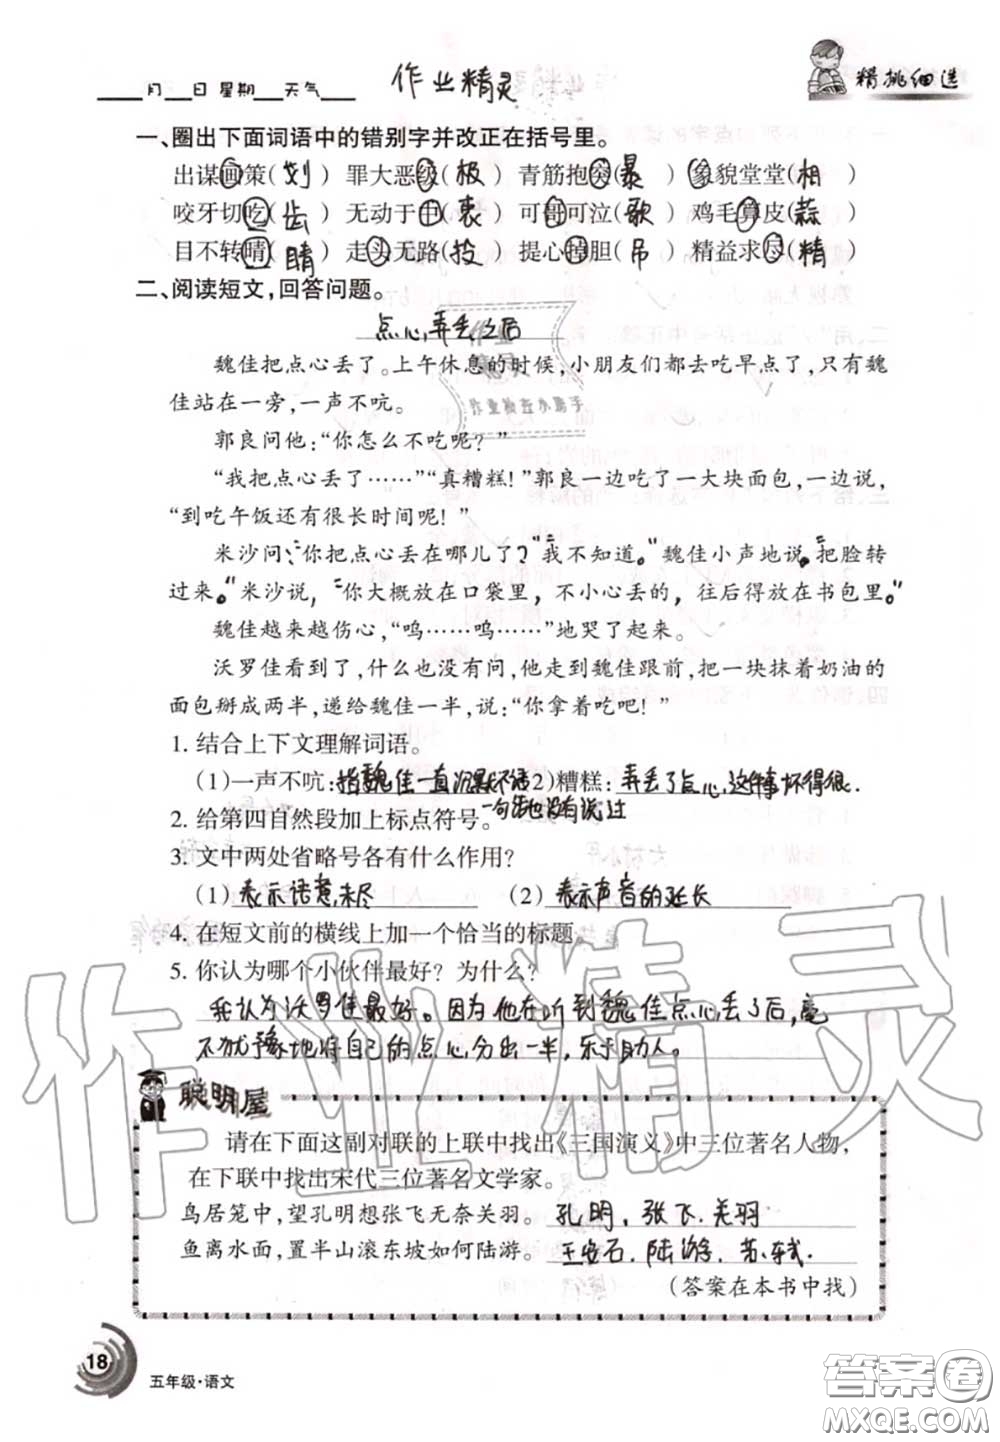 ___月___日 星期___天气___ 作业精灵 精挑细选
一、圈出下面词语中的错别字并改正在括号里。
出谋画策(划) 罪大恶级(极) 青筋抱突(暴) 象貌堂堂(相)
咬牙切吃(齿) 无动于中(衷) 可哥可泣(歌) 鸡毛算皮(蒜)
目不转晴(睛) 走头无路(投) 提心掉胆(吊) 精益求尽(精)
二、阅读短文,回答问题。
点心弄丢之后
魏佳把点心丢了。上午休息的时候,小朋友们都去吃早点了,只有魏
佳站在一旁,一声不吭。
作业检查小助手
郭良问他:“你怎么不吃呢？”
“我把点心丢了……”“真糟糕!”郭良一边吃了一大块面包,一边说,
“到吃午饭还有很长时间呢!”
米沙问:“你把点心丢在哪儿了?”“我不知道。”魏佳小声地说。把脸转
过来。”米沙说,“你大概放在口袋里,不小心丢的,往后得放在书包里。”
魏佳越来越伤心,“呜……呜……”地哭了起来。
沃罗佳看到了,什么也没有问,他走到魏佳跟前,把一块抹着奶油的
面包掰成两半,递给魏佳一半,说:“你拿着吃吧!”
1. 结合上下文理解词语。
(1)一声不吭:指魏佳一直沉默不语(2)糟糕:弄丢了点心,这件事坏得很.
一句话也没有说过
2. 给第四自然段加上标点符号。
3. 文中两处省略号各有什么作用?
(1)表示语意未尽 (2)表示声音的延长
4. 在短文前的横线上加一个恰当的标题。
5. 你认为哪个小伙伴最好？为什么?
我认为沃罗佳最好。因为他在听到魏佳点心丢了后,毫
不犹豫地将自己的点心分出一半,乐于助人。
作业精灵
聪明屋
请在下面这副对联的上联中找出《三国演义》中三位著名人物,
在下联中找出宋代三位著名文学家。
鸟居笼中,望孔明想张飞无奈关羽。 孔明,张飞.关羽
鱼离水面,置半山滚东坡如何陆游。 王安石,陆游,苏轼.
(答案在本书中找)
18
五年级·语文
答案圈
MXQE.COM